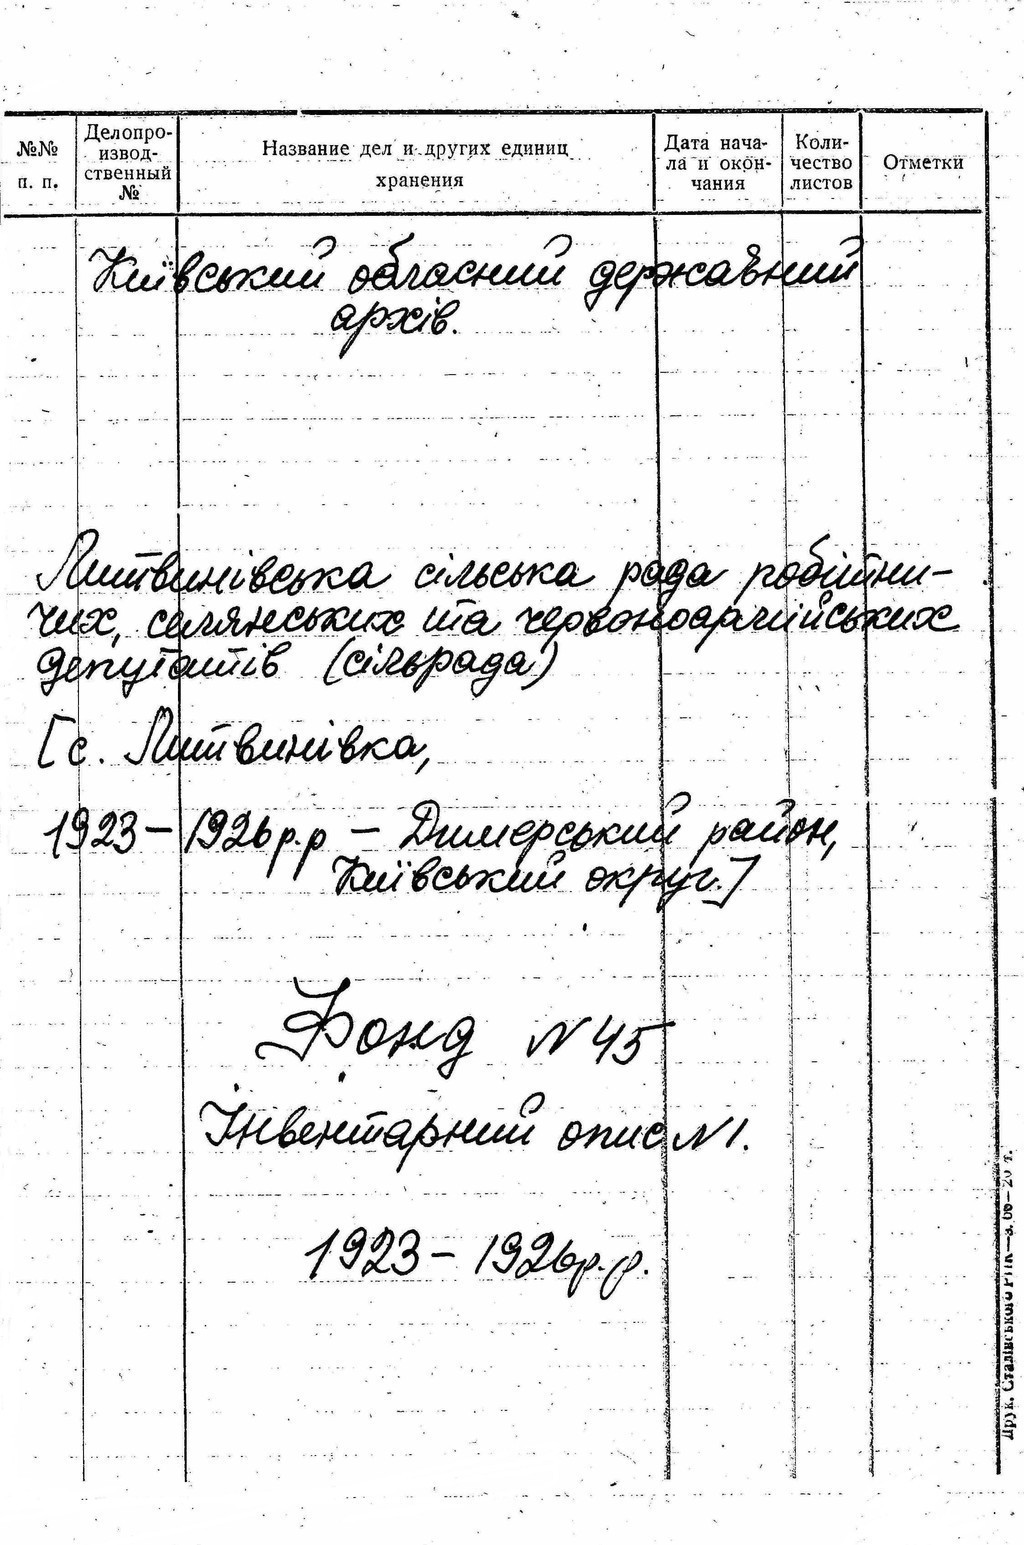 №№ п. п.
Делопро-
извод-
ственный
№
Название дел и других единиц
хранения
Дата нача-
ла и окон-
чания
Коли-
чество
листов
Отметки
Київський обласний державний
архів.
Литвинівська сільська рада робітни-
чих, селянських та червоноармійських
депутатів (сільрада)
[с. Литвинівка,
1923 – 1926 р.р – Димерський район,
Київський округ.]
Фонд № 45
Інвентарний опис № 1.
1923 – 1926 р.р.
Друк. Сталінського